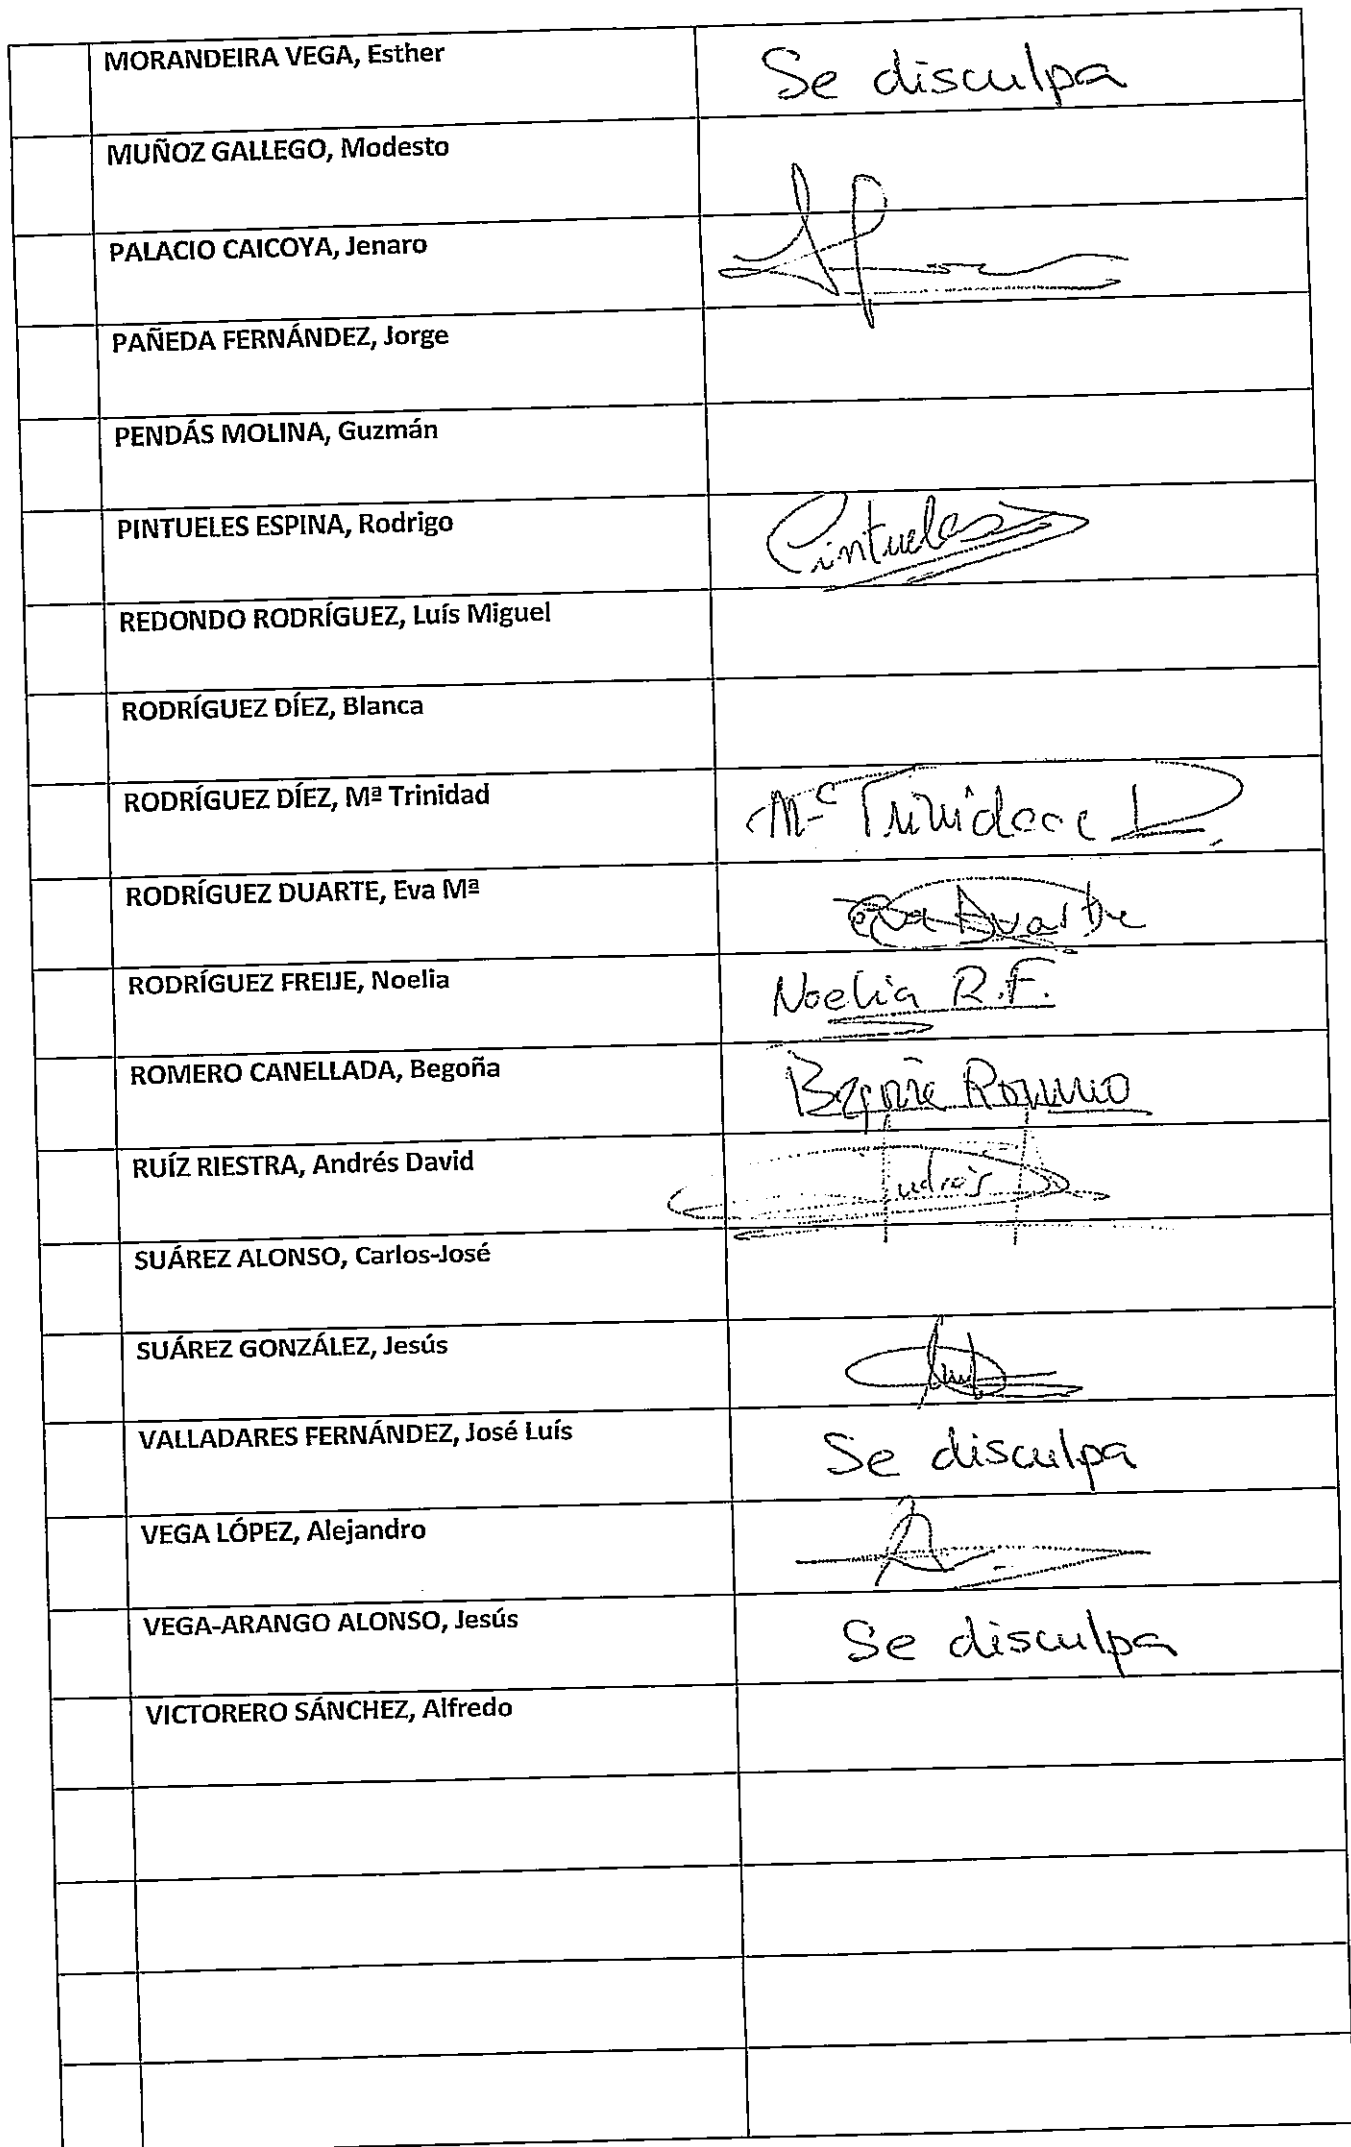 MORANDEIRA VEGA, Esther Se disculpa
MUÑOZ GALLEGO, Modesto
PALACIO CAICOYA, Jenaro
PAÑEDA FERNÁNDEZ, Jorge
PENDÁS MOLINA, Guzmán
PINTUELES ESPINA, Rodrigo Pintueles
REDONDO RODRÍGUEZ, Luís Miguel
RODRÍGUEZ DÍEZ, Blanca
RODRÍGUEZ DÍEZ, Mª Trinidad Mª Trinidad
RODRÍGUEZ DUARTE, Eva Mª Eva Duarte
RODRÍGUEZ FREIJE, Noelia Noelia R.F.
ROMERO CANELLADA, Begoña Begoña Romero
RUÍZ RIESTRA, Andrés David Andrés
SUÁREZ ALONSO, Carlos-José
SUÁREZ GONZÁLEZ, Jesús
VALLADARES FERNÁNDEZ, José Luís Se disculpa
VEGA LÓPEZ, Alejandro
VEGA-ARANGO ALONSO, Jesús Se disculpa
VICTORERO SÁNCHEZ, Alfredo